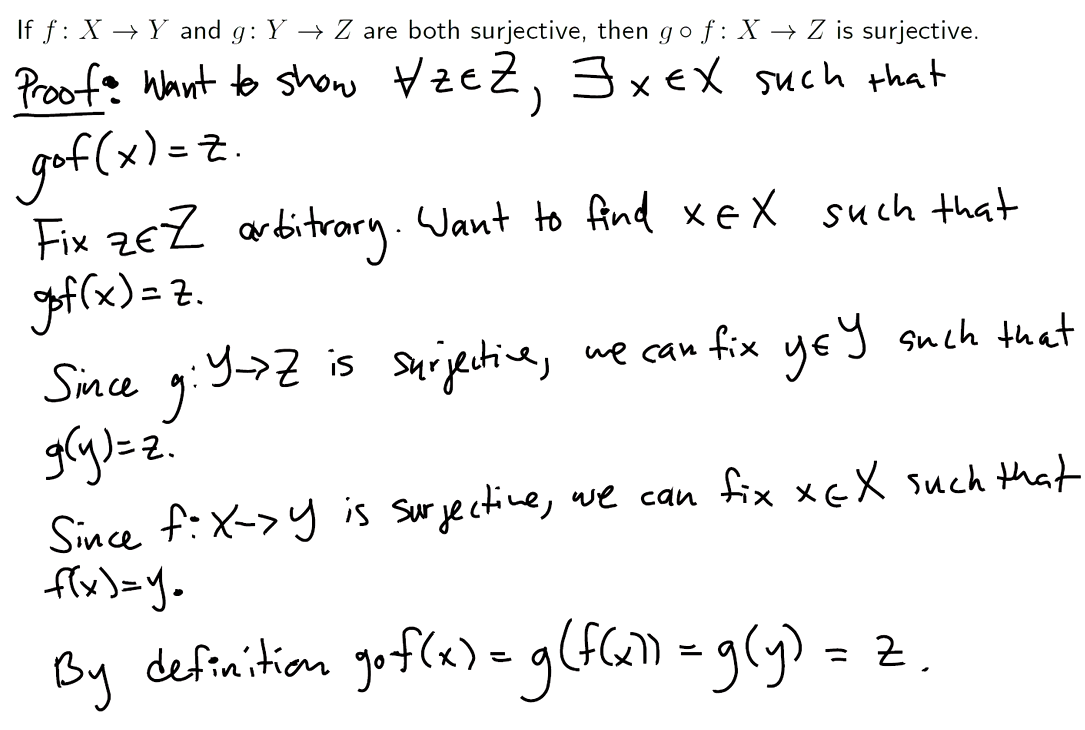 If f: X → Y and g: Y → Z are both surjective, then g ∘ f: X → Z is surjective.
Proof: Want to show ∀ z ∈ Z, ∃ x ∈ X such that
g∘f(x) = z.
Fix z ∈ Z arbitrary. Want to find x ∈ X such that
g∘f(x) = z.
Since g: Y → Z is surjective, we can fix y ∈ Y such that
g(y) = z.
Since f: X → Y is surjective, we can fix x ∈ X such that
f(x) = y.
By definition g∘f(x) = g(f(x)) = g(y) = z.